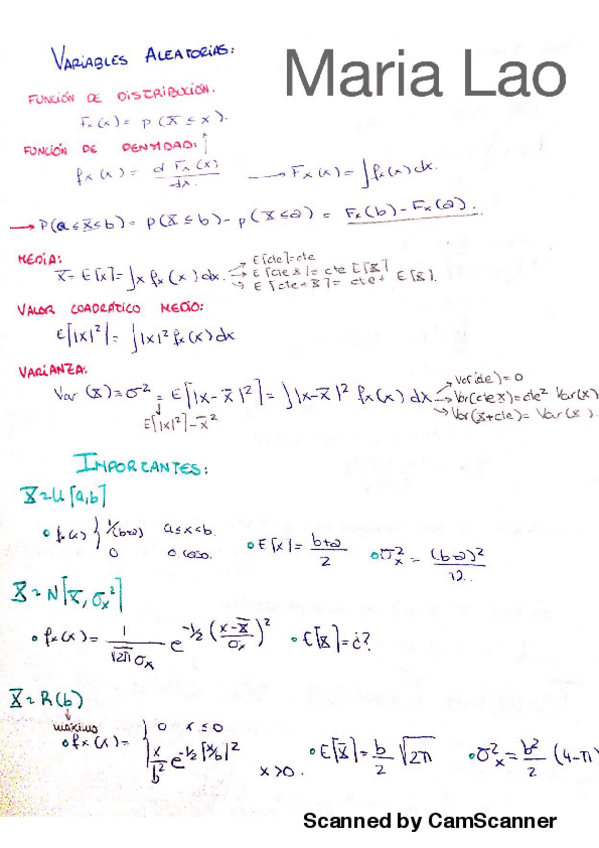 VARIABLES ALEATORIAS:
Maria Lao
FUNCIÓN DE DISTRIBUCIÓN.
Fx(x) = p(X ≤ x).
FUNCIÓN DE DENSIDAD:
fx(x) = d Fx(x)/dx. → Fx(x) = ∫fx(x)dx.
→ P(a ≤ X ≤ b) = p(X ≤ b) - p(X ≤ a) = Fx(b) - Fx(a).
MEDIA:
X̄ = E[x] = ∫x fx(x)dx.
→ E[cte]=cte
→ E[cte X] = cte E[X]
→ E[cte+X] = cte + E[X].
VALOR CUADRÁTICO MEDIO:
E[|x|²] = ∫|x|² fx(x)dx
VARIANZA:
Var(X) = σ² = E[|x-X̄|²] = ∫|x-x̄|² fx(x)dx
E[|x|²]-x̄²
→ Var(cte) = 0
→ Var(cte X) = cte² Var(X)
→ Var(X+cte) = Var(X).
IMPORTANTES:
X≈U[a,b]
fx(x) { 1/(b-a) a≤x≤b.
0 o caso.
E[x] = b+a/2
σx² = (b-a)²/12.
X≈N[x̄, σx²]
fx(x) = 1/√2π σx e^-1/2 (x-x̄/σx)²
E[X] = ¿?
X≈R(b)
máximo
fx(x) = { 0 x≤0
x/b² e^-1/2[x/b]² x>0.
E[X] = b/2 √2π
σx² = b²/2 (4-π)
Scanned by CamScanner